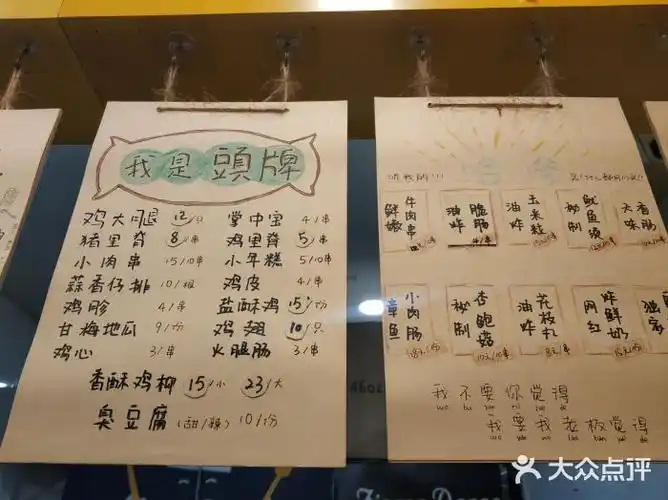 我是頭牌
鸡大腿 12/只 掌中宝 4/串
猪里脊 8/串 鸡里脊 5/串
小肉串 15/10串 小年糕 5/10串
蒜香仔排 10/根 鸡皮 4/串
鸡胗 4/串 盐酥鸡 15/份
甘梅地瓜 9/份 鸡翅 10/只
鸡心 3/串 火腿肠 3/串
香酥鸡柳 15/小 23/大
臭豆腐(甜/辣) 10/份
听我的!!!
鲜嫩 牛肉串
油炸 脆肠 4/串
油炸 玉米粒
秘制 鱿鱼须
大香肠
章鱼小肉肠
秘制 杏鲍菇 10元/10串
油炸 花枝丸
网红 炸鲜奶
独家
我不要你觉得
wo bu yao ni jue de
我要我老板觉得
wo yao wo lao ban jue de
大众点评